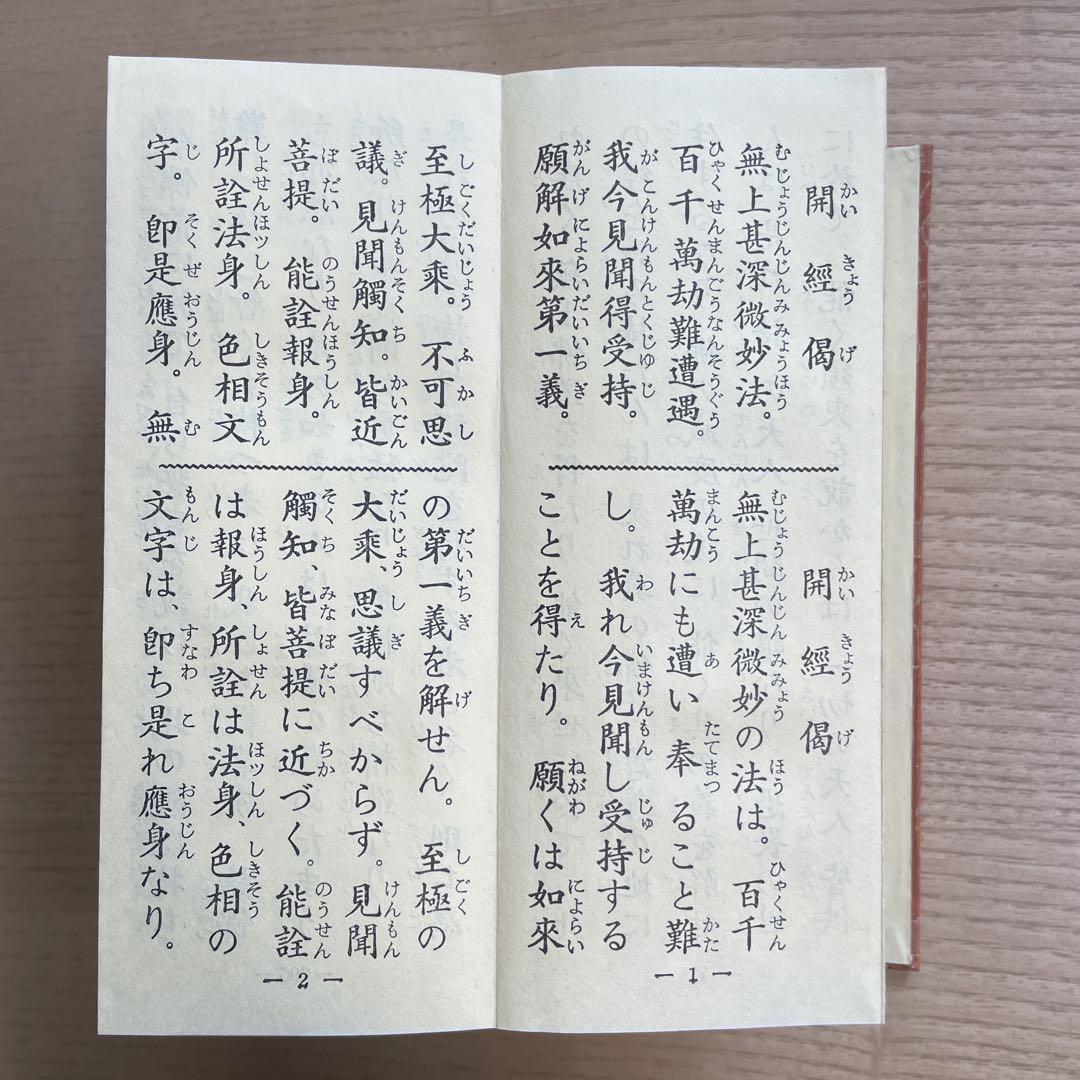 開經偈
無上甚深微妙法。
百千萬劫難遭遇。
我今見聞得受持。
願解如來第一義。
開經偈
無上甚深微妙の法は。百千
萬劫にも遭い奉ること難
し。我れ今見聞し受持する
ことを得たり。願くは如來
— 1 —
至極大乘。不可思
議。見聞觸知。皆近
菩提。能詮報身。
所詮法身。色相文
字。卽是應身。無
の第一義を解せん。至極の
大乘、思議すべからず。見聞
觸知、皆菩提に近づく。能詮
は報身、所詮は法身、色相の
文字は、卽ち是れ應身なり。
— 2 —